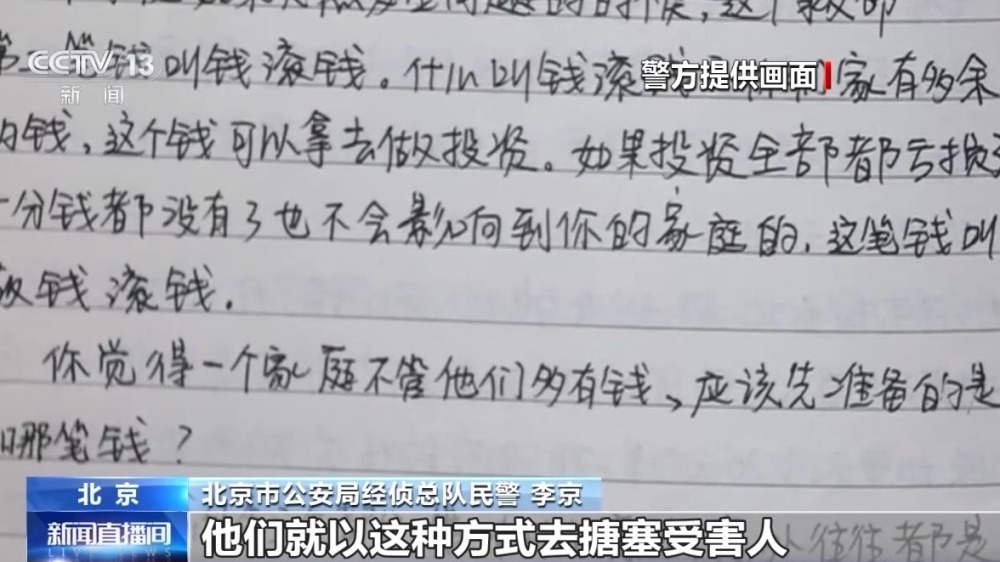 第二笔钱叫钱滚钱。什么叫钱滚钱 家有多余
的钱，这个钱可以拿去做投资。如果投资全部都亏损
一分钱都没有了也不会影向到你的家庭的，这笔钱叫
钱滚钱.
你觉得一个家庭不管他们多有钱、应该先准备的是
哪笔钱？
往往都是
CCTV 13
新闻
警方提供画面
北京
北京市公安局经侦总队民警 李京
新闻直播间
LIVE NEWS
他们就以这种方式去搪塞受害人